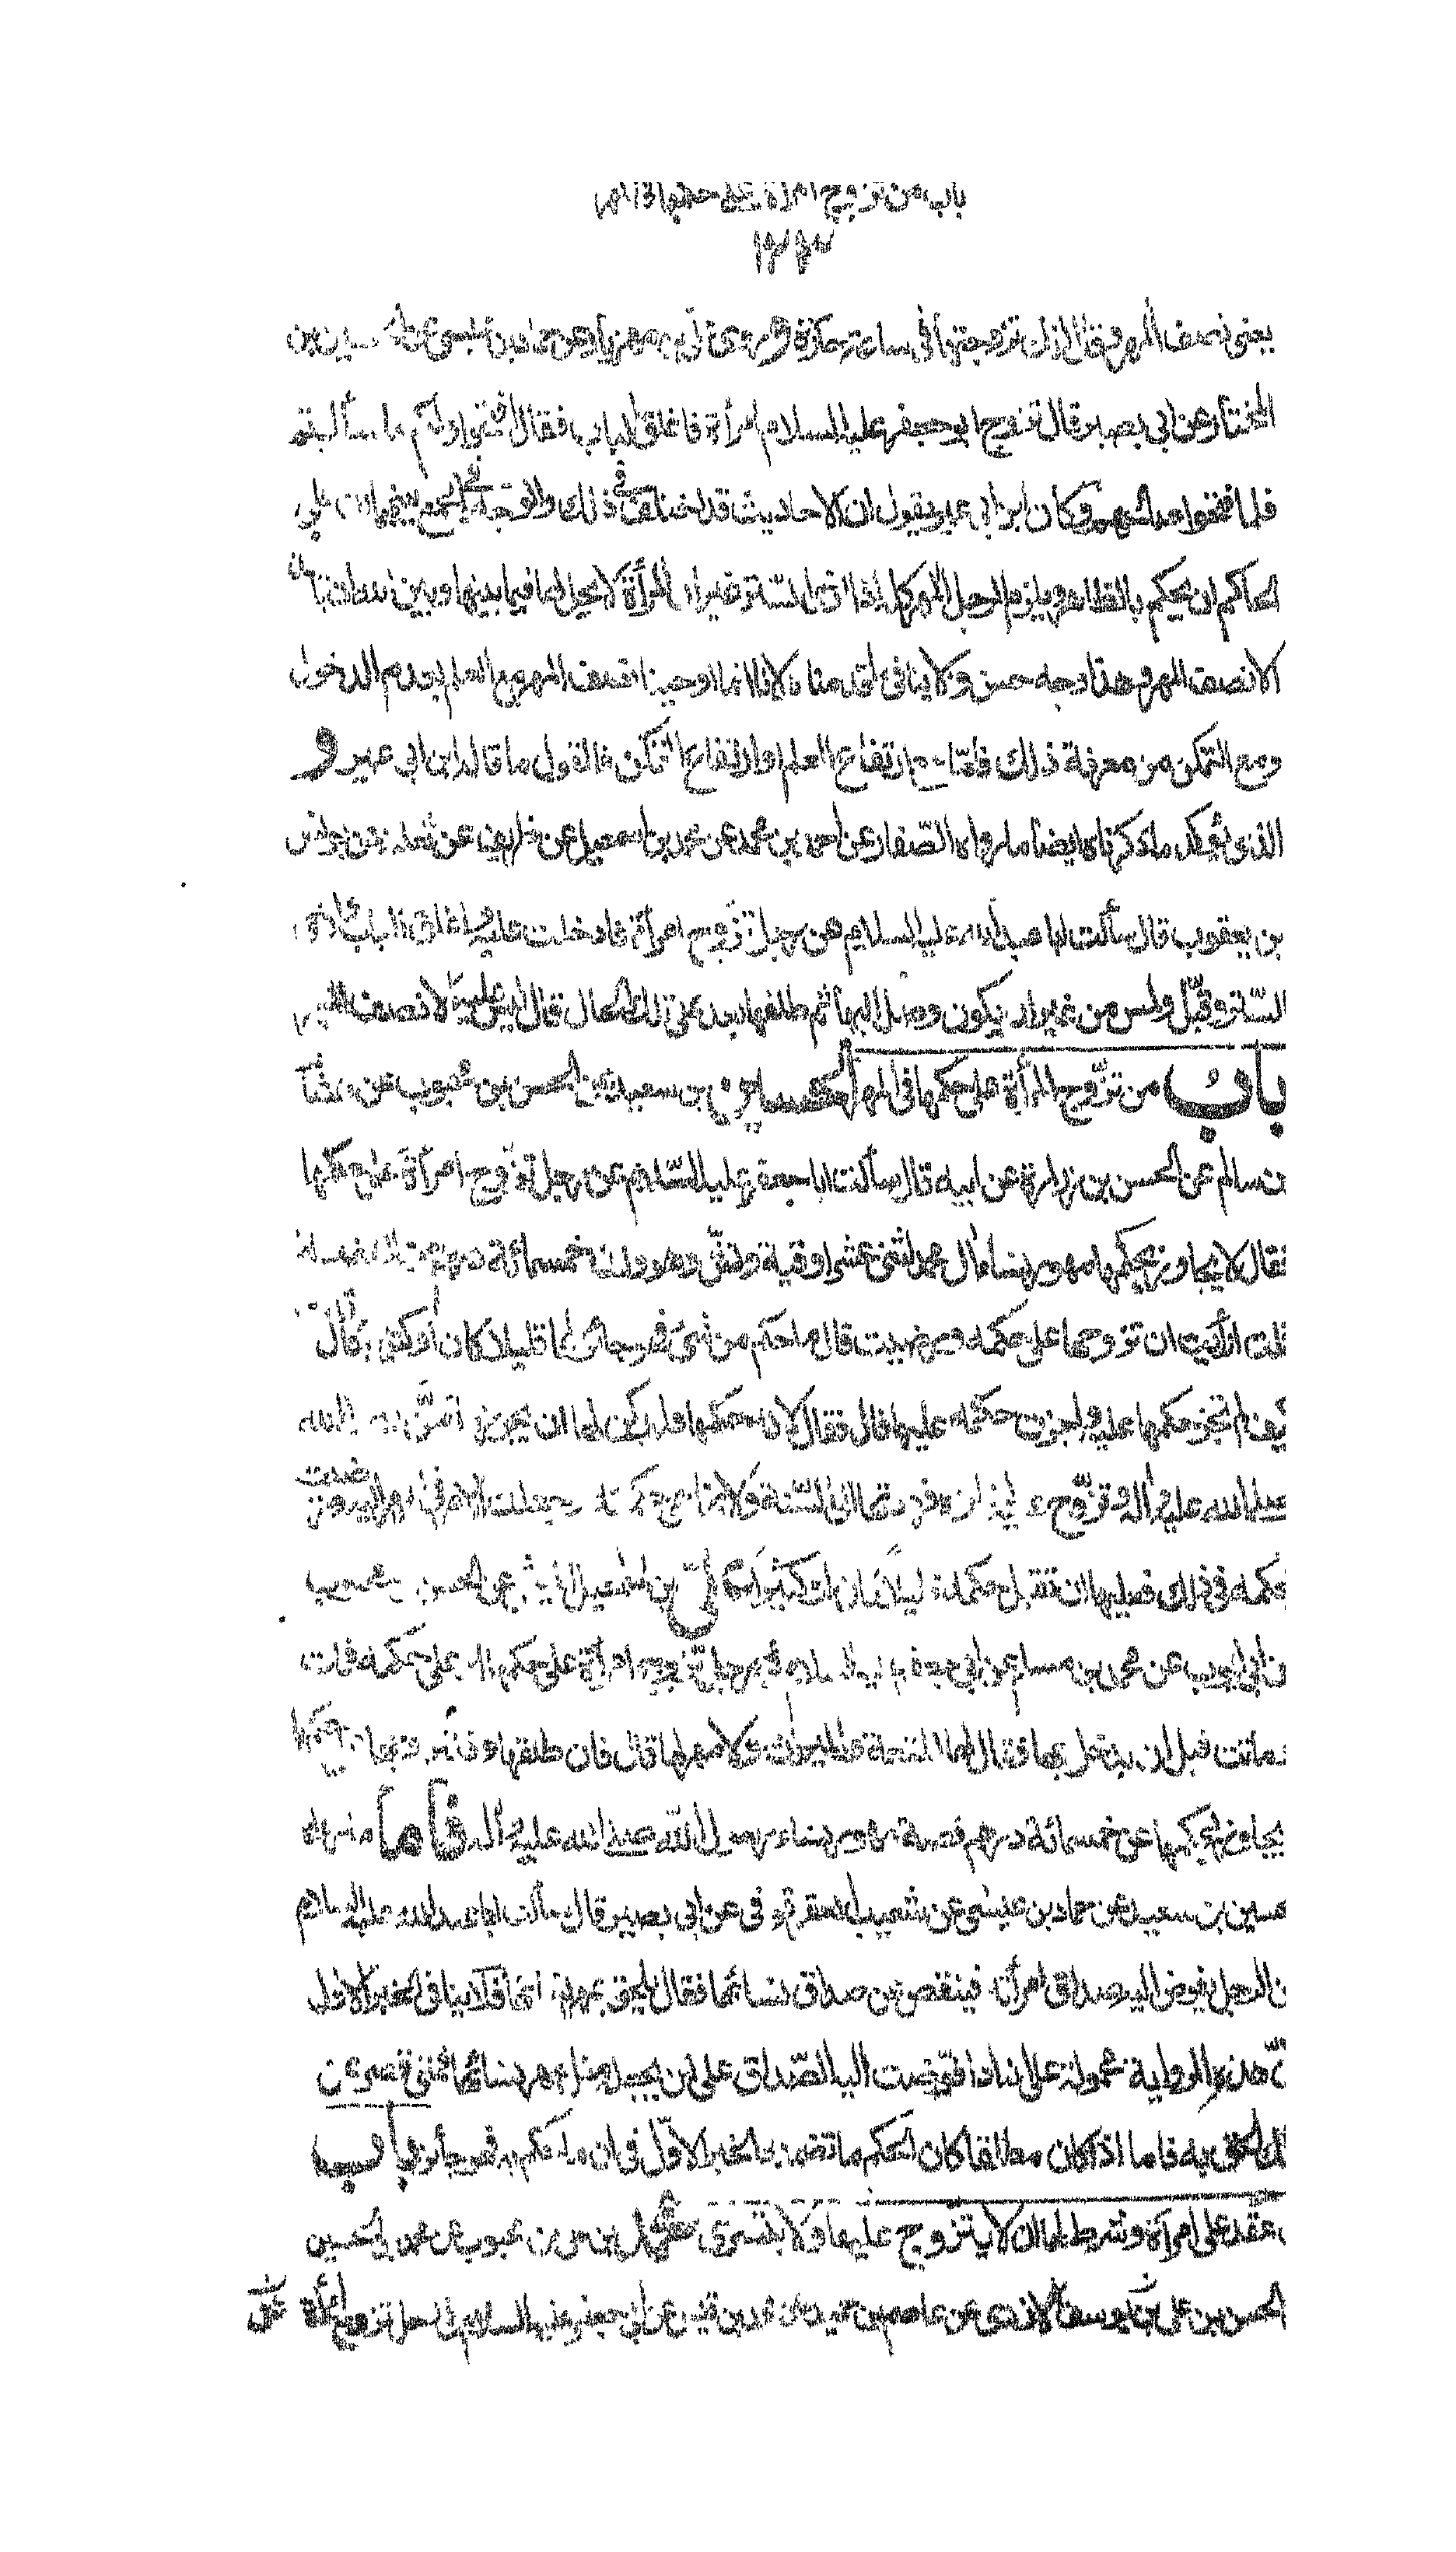 باب من تزوج امرأة على حكمها فى المهر
يعنى نصف المهر وقال انك تزوجتها فى ساعة حارة وروى
المختار عن ابى بصير قال تزوج ابو جعفر عليه السلام امرأة فاغلق الباب فقال افتحوا ولكم ما سألتم
فلما فتحوا صالحهم وكان ابن ابى عمير يقول ان الاحاديث قد اختلفت فى ذلك والوجه فى الجمع بينهما ان على
الحاكم ان يحكم بالظاهر ويلزم الرجل المهر كله اذا ارخى الستر غير ان المرأة لا يحل لها فيما بينها وبين الله ان تأخذ
الا نصف المهر وهذا وجه حسن ولا ينافى ما قدمناه لانا انما اوجبنا نصف المهر مع العلم بعدم الدخول
ومع التمكن من معرفة ذلك فاما مع ارتفاع العلم وارتفاع التمكن فالقول ما قاله ابن ابى عمير و
الذى يؤكد ما ذكرناه ايضا ما رواه الصفار عن احمد بن محمد عن محمد بن اسمعيل عن ظريف عن ثعلبة عن يونس
بن يعقوب قال سألت ابا عبد الله عليه السلام عن رجل تزوج امرأة فادخلت عليه واغلق الباب وارخى
الستر وقبل ولمس من غير ان يكون وصل اليها ثم طلقها بعد على تلك الحال قال ليس عليه الا نصف المهر
باب من تزوج المرأة على حكمها فى المهر الحسين بن سعيد عن الحسن بن محبوب عن هشام
بن سالم عن الحسن بن زرارة عن ابيه قال سألت ابا جعفر عليه السلام عن رجل تزوج امرأة على حكمها
فقال لا يجاوز بحكمها مهور نساء آل محمد اثنتى عشر اوقية ونش وهو وزن خمسمائة درهم من الفضة
قلت ارأيت ان تزوجها على حكمه ورضيت قال ما حكم من شئ فهو جائز لها قليلا كان او كثيرا قال قلت
كيف لم تجز حكمها عليه واجزت حكمه عليها قال فقال لانه حكمها فلم يكن لها ان تجوز ما سن رسول الله
صلى الله عليه وآله وتزوج عليه نساءه فرددتها الى السنة ولانها هى حكمته وجعلت الامر فى المهر اليه ورضيت
بحكمه فى ذلك فعليها ان تقبل حكمه قليلا كان او كثيرا على بن اسمعيل الميثمى عن الحسن بن محبوب
عن ابى ايوب عن محمد بن مسلم عن ابى جعفر عليه السلام فى رجل تزوج امرأة على حكمها او على حكمه فمات
او ماتت قبل ان يدخل بها فقال لها المتعة والميراث ولا مهر لها قال فان طلقها وقد تزوجها على حكمها لم
يتجاوز بحكمها عن خمسمائة درهم فضة مهور نساء رسول الله صلى الله عليه وآله فاما ما رواه
الحسين بن سعيد عن حماد بن عيسى عن شعيب العقرقوفى عن ابى بصير قال سألت ابا عبد الله عليه السلام
عن الرجل يفوض اليه صداق امرأته فينقص عن صداق نسائها فقال يلحق بمهر نسائها فلا ينافى الخبر الاول
لان هذه الرواية محمولة على انه اذا فوضت اليه الصداق على ان يجعله مثل مهر نسائها فمتى قصر عن
ذلك الحق به فاما اذا كان مطلقا كان الحكم ما تضمنه الخبر الاول فى ان ما حكم به فهو جائز باب
من عقد على امرأة وشرط لها ان لا يتزوج عليها ولا يتسرى محمد بن على بن محبوب عن محمد بن الحسين
عن الحسن بن على بن يوسف الازدى عن عاصم بن حميد عن محمد بن قيس عن ابى جعفر عليه السلام فى رجل تزوج امرأة